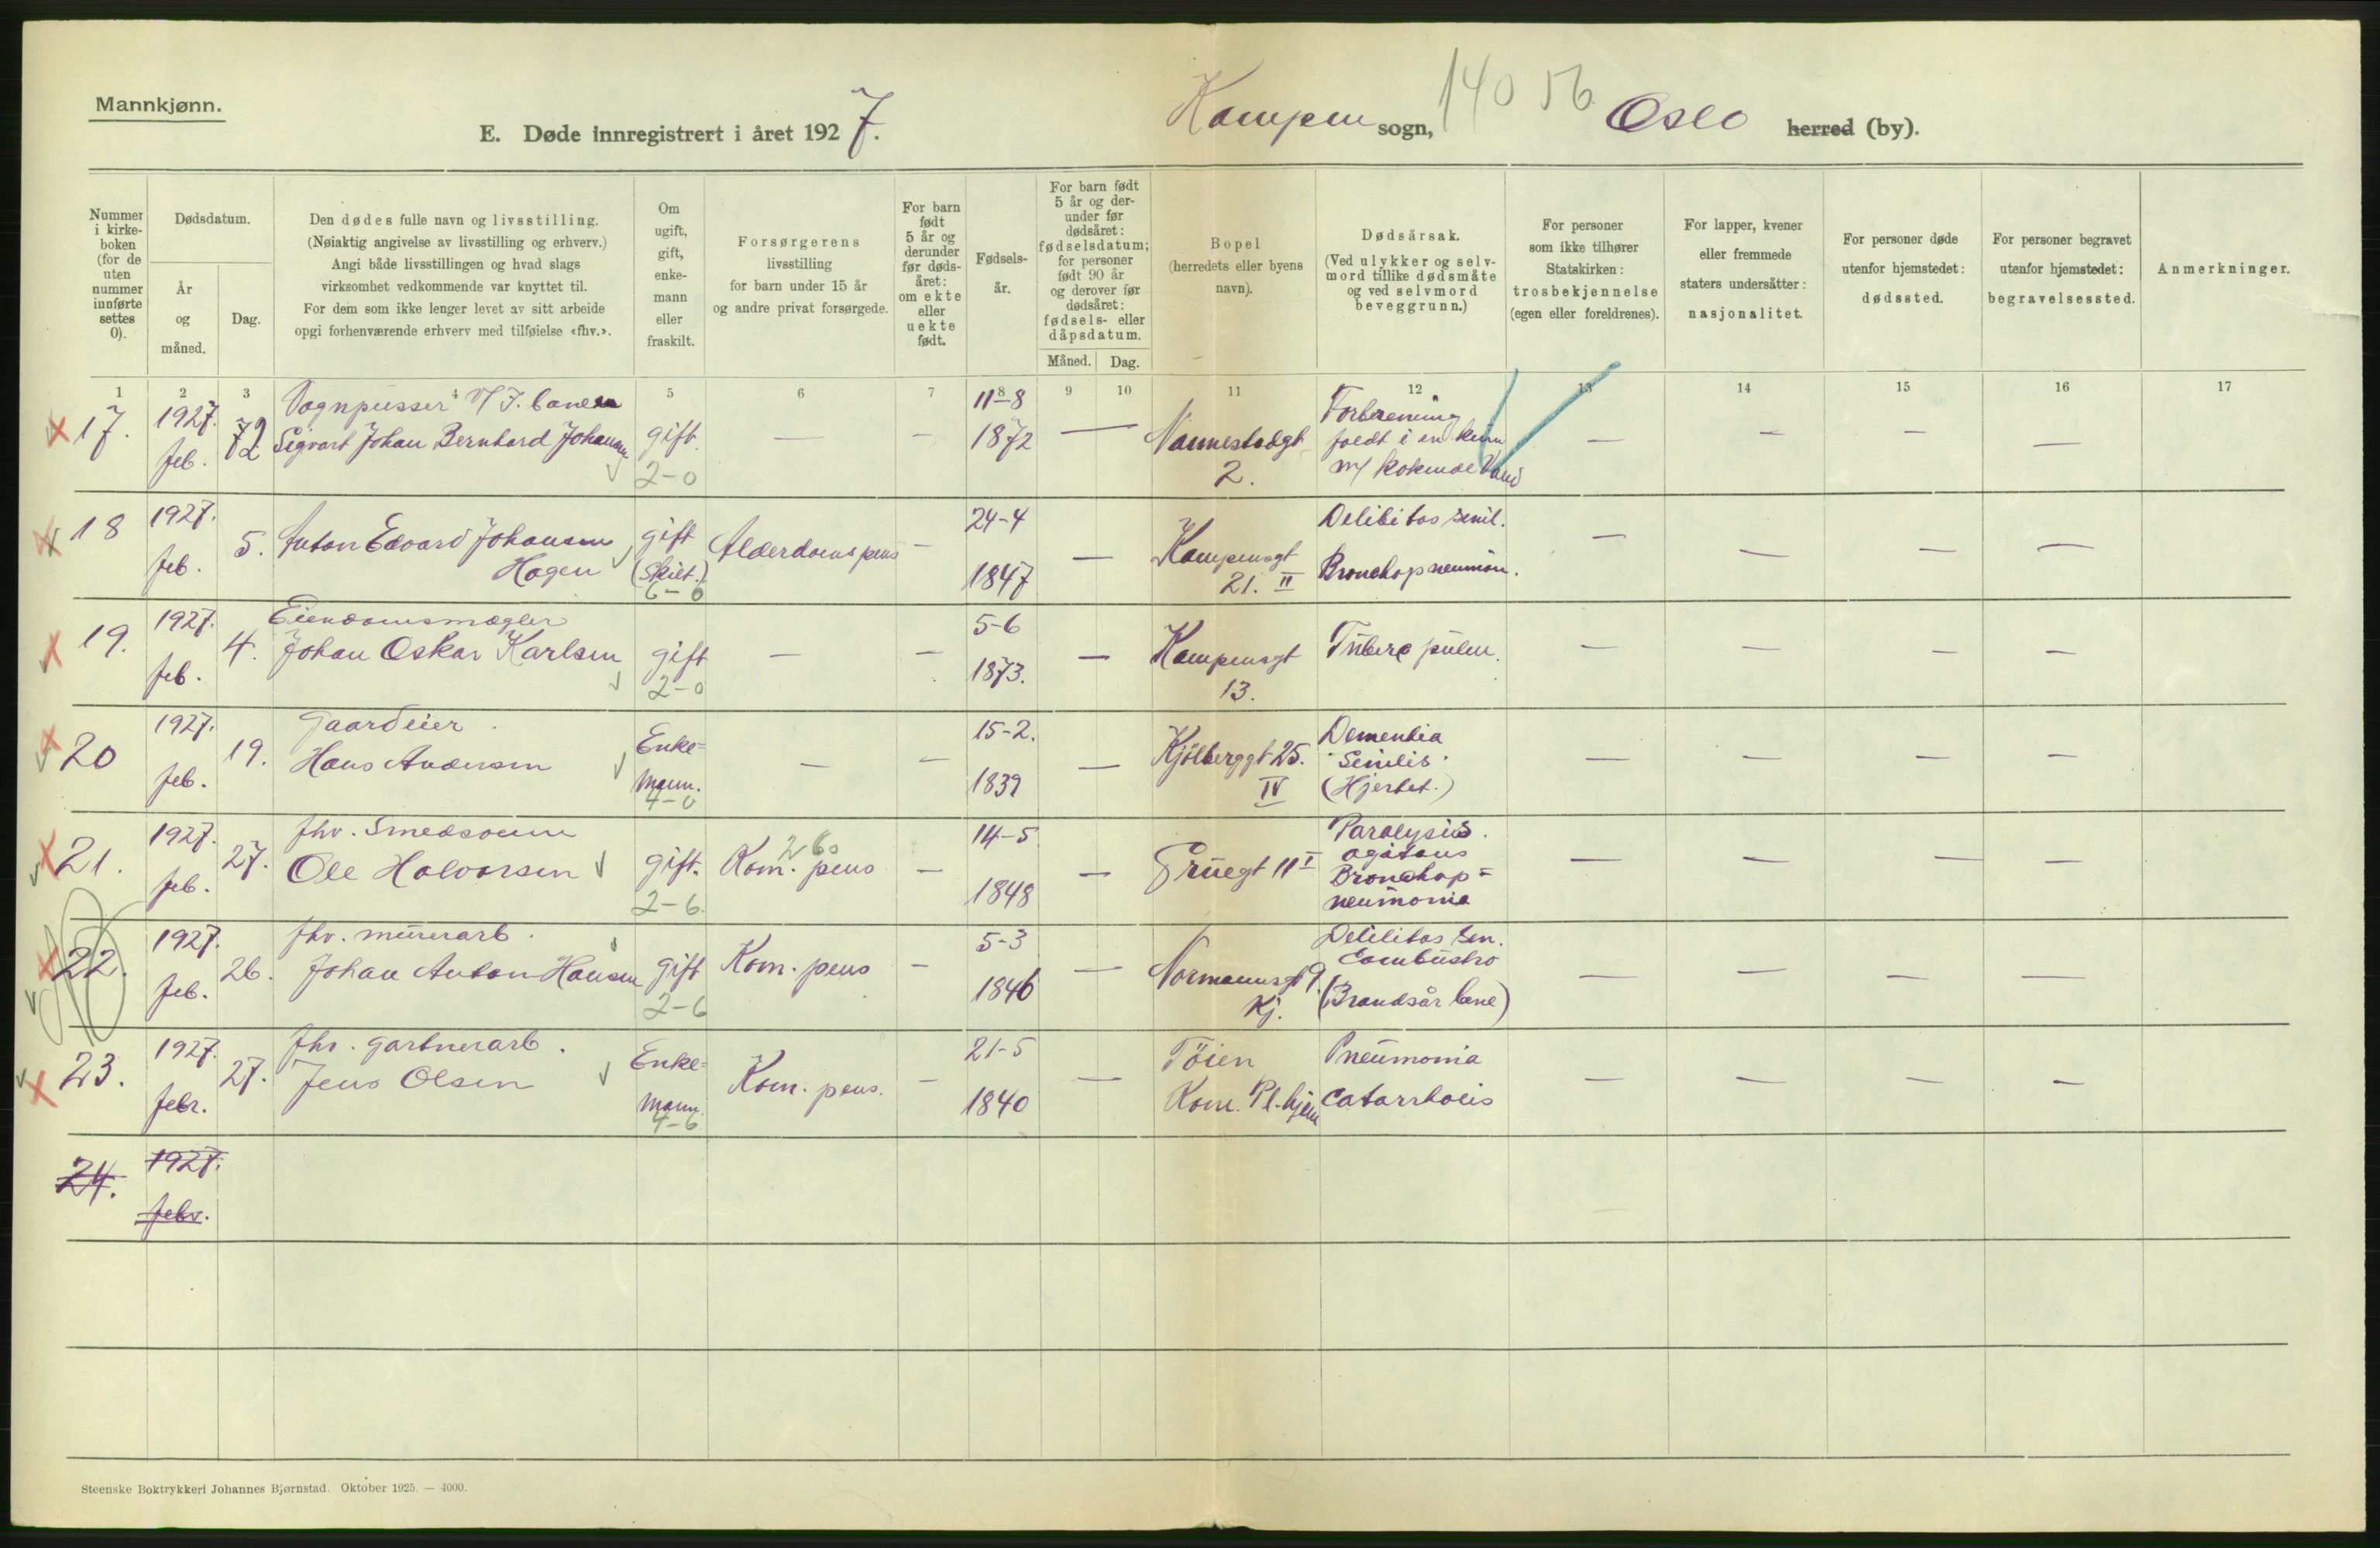 Mannkjønn.
E. Døde innregistrert i året 1927.
Kampen sogn,
14056
Oslo herred (by).
Nummer i kirkeboken (for de uten nummer innførte settes 0).
Dødsdatum.
År og måned.
Dag.
Den dødes fulle navn og livsstilling.
(Nøiaktig angivelse av livsstilling og erhverv.)
Angi både livsstillingen og hvad slags
virksomhet vedkommende var knyttet til.
For dem som ikke lenger levet av sitt arbeide
opgi forhenværende erhverv med tilføielse «fhv.».
Om ugift, gift, enkemann eller fraskilt.
Forsørgerens
livsstilling
for barn under 15 år
og andre privat forsørgede.
For barn født 5 år og derunder før dødsåret: om ekte eller uekte født.
Fødselsår.
For barn født 5 år og derunder før dødsåret: fødselsdatum; for personer født 90 år og derover før dødsåret: fødsels- eller dåpsdatum.
Måned. Dag.
Bopel
(herredets eller byens
navn).
Dødsårsak.
(Ved ulykker og selvmord tillike dødsmåte
og ved selvmord
beveggrunn.)
For personer
som ikke tilhører
Statskirken:
trosbekjennelse
(egen eller foreldrenes).
For lapper, kvener
eller fremmede
staters undersåtter:
nasjonalitet.
For personer døde
utenfor hjemstedet:
dødssted.
For personer begravet
utenfor hjemstedet:
begravelsessted.
Anmerkninger.
1 2 3 4 5 6 7 8 9 10 11 12 13 14 15 16 17
17. 1927. feb. 12 Vognpusser v/ J. banen
Sigvart Johan Bernhard Johansen gift 2-0 — — 11-8 1872 — Nannestadgt 2. Forbrenning
faldt i en
m/ kokende Vand — — — —
18 1927. feb. 5. Anton Edvard Johansen
Hagen gift (skilt.) 6-6 Alderdoms pens — 24-4 1847 — Kampensgt 21. II Delibitas senil.
Bronchopneumon. — — — —
19. 1927. feb. 4. Eiendomsmægler
Johan Oskar Karlsen gift 2-0 — — 5-6 1873. — Kampensgt 13. Tuberc pulm. — — — —
20 1927. feb. 19. Gaardeier
Hans Andersen Enke= Mann. 4-0 — — 15-2. 1839 — Kjølberggt 25. IV Dementia
Senilis
(Hjertet.) — — — —
21. 1927. feb. 27. fhv. Smedsvenn
Ole Halvorsen gift. 2-6. Kom. pens — 14-5 1848 — Gruegt 11 I Paralysis
agitans
Bronchop=
neumonia — — — —
22. 1927. feb. 26. fhv. murerarb.
Johan Anton Hansen gift 2-6 Kom. pens — 5-3 1846 — Normannsgt 9. Kj. Delilitas Sen.
Combustio
(Brandsår bene) — — — —
23. 1927. febr. 27. fhv. gartnerarb.
Jens Olsen Enke= Mann. 4-6 Kom. pens. — 21-5 1840 — Töien
Kom. Pl. hjem Pneumonia
Catarrhalis — — — —
24. 1927. febr.
Steenske Boktrykkeri Johannes Bjørnstad. Oktober 1925. — 4000.